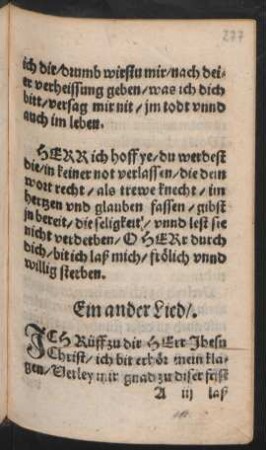 277
ich dir/drumb wirstu mir/nach dei-
ner verheissung geben/was ich dich
bitt/versag mir nit/jm todt vnnd
auch im leben.
HERR ich hoff ye/du werdest
die/in keiner not verlassen/die dein
wort recht/als trewe knecht/im
hertzen vnd glauben fassen/gibst
jn bereit/die seligkeit/vnnd lest sie
nicht verderben/O HERr durch
dich/bit ich laß mich/frölich vnnd
willig sterben.
Ein ander Lied/.
ICH Rüff zu dir HErr Jhesu
Christ/ich bit erhör mein kla-
gen/Verley mir gnad zu diser frist
A iij laß